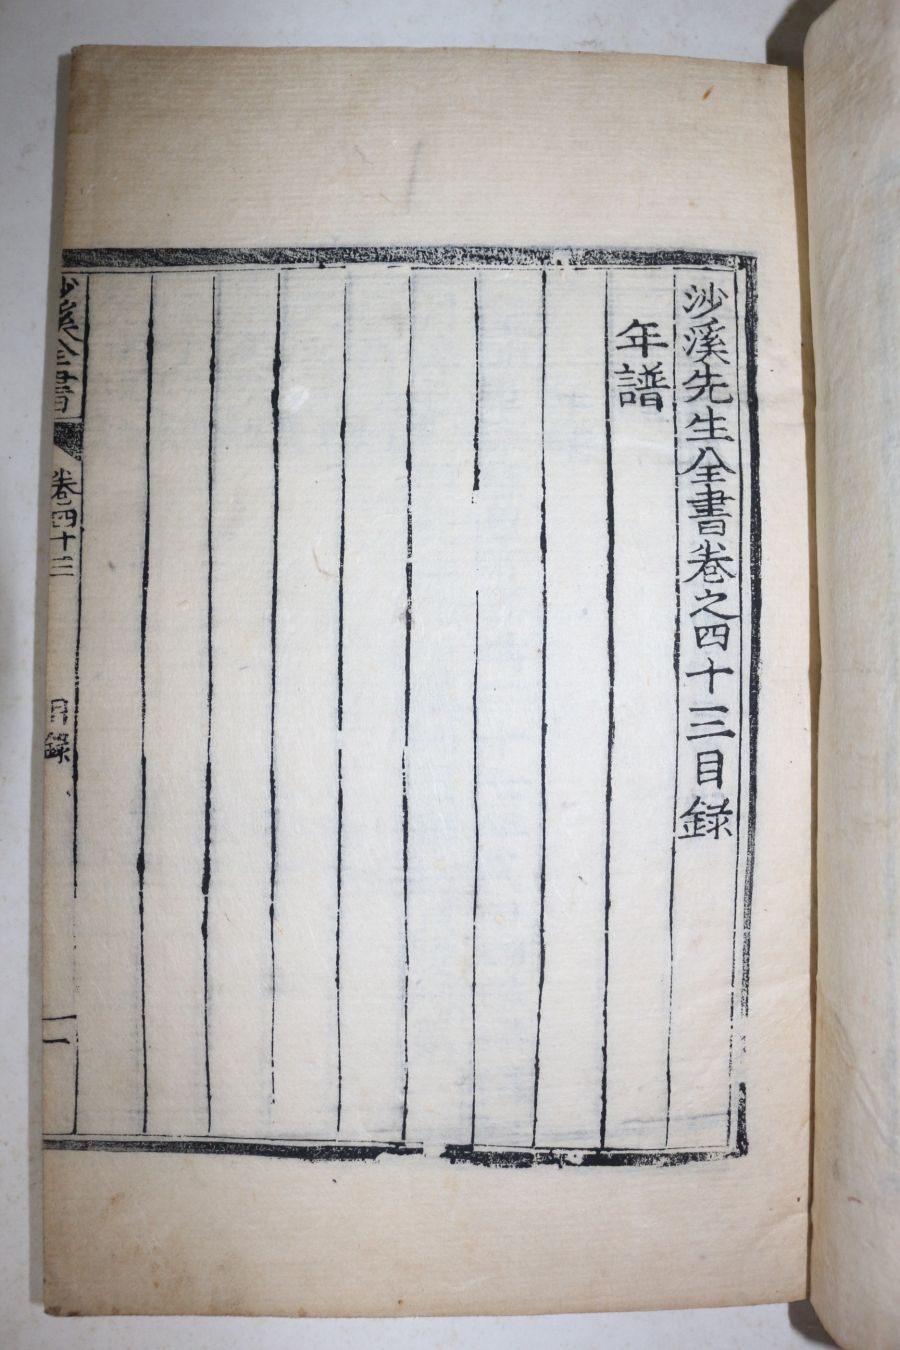 沙溪先生全書卷之四十三目録
年譜
沙溪全書
卷四十三
目録